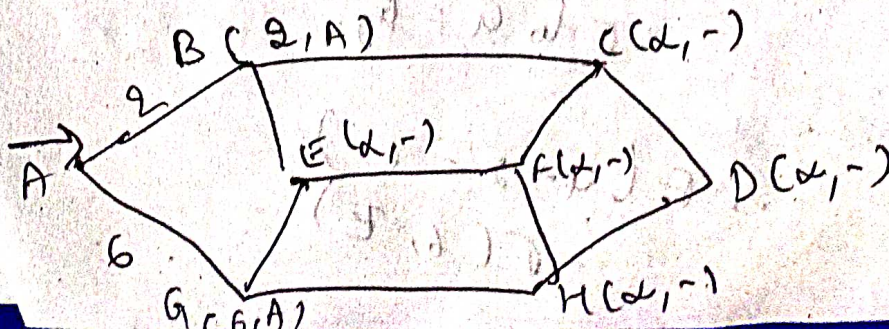 B (2, A)
C (α, -)
2
E (α, -)
F (α, -)
A
D (α, -)
6
G (6, A)
H (α, -)